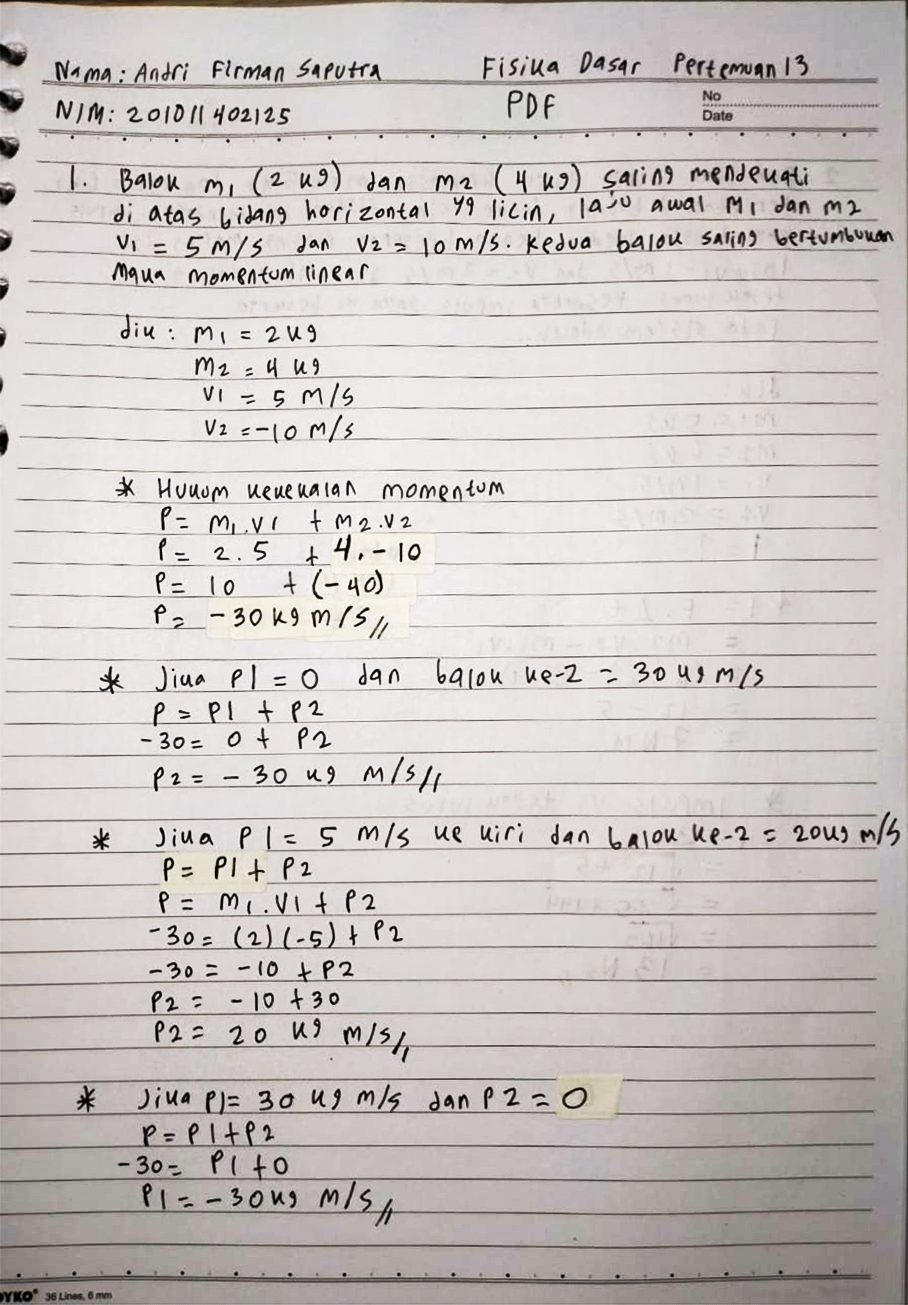 Nama: Andri Firman Saputra Fisika Dasar Pertemuan 13
NIM: 201011402125 PDF No
Date
1. Balok m1 (2 kg) dan m2 (4 kg) saling mendekati
di atas bidang horizontal yg licin, laju awal M1 dan m2
V1 = 5 M/s dan V2 = 10 M/s. Kedua balok saling bertumbukan
Maka momentum linear
dik : M1 = 2 kg
M2 = 4 kg
V1 = 5 M/s
V2 = -10 M/s
* Hukum kekekalan momentum
P = M1.V1 + M2.V2
P = 2.5 + 4.-10
P = 10 + (-40)
P = -30 kg m/s //
* Jika P1 = 0 dan balok ke-2 = 30 kg m/s
P = P1 + P2
-30 = 0 + P2
P2 = -30 kg m/s //
* Jika P1 = 5 m/s ke kiri dan balok ke-2 = 20 kg m/s
P = P1 + P2
P = M1.V1 + P2
-30 = (2)(-5) + P2
-30 = -10 + P2
P2 = -10 + 30
P2 = 20 kg m/s //
* Jika P1 = 30 kg m/s dan P2 = 0
P = P1 + P2
-30 = P1 + 0
P1 = -30 kg m/s //
36 Lines, 6 mm